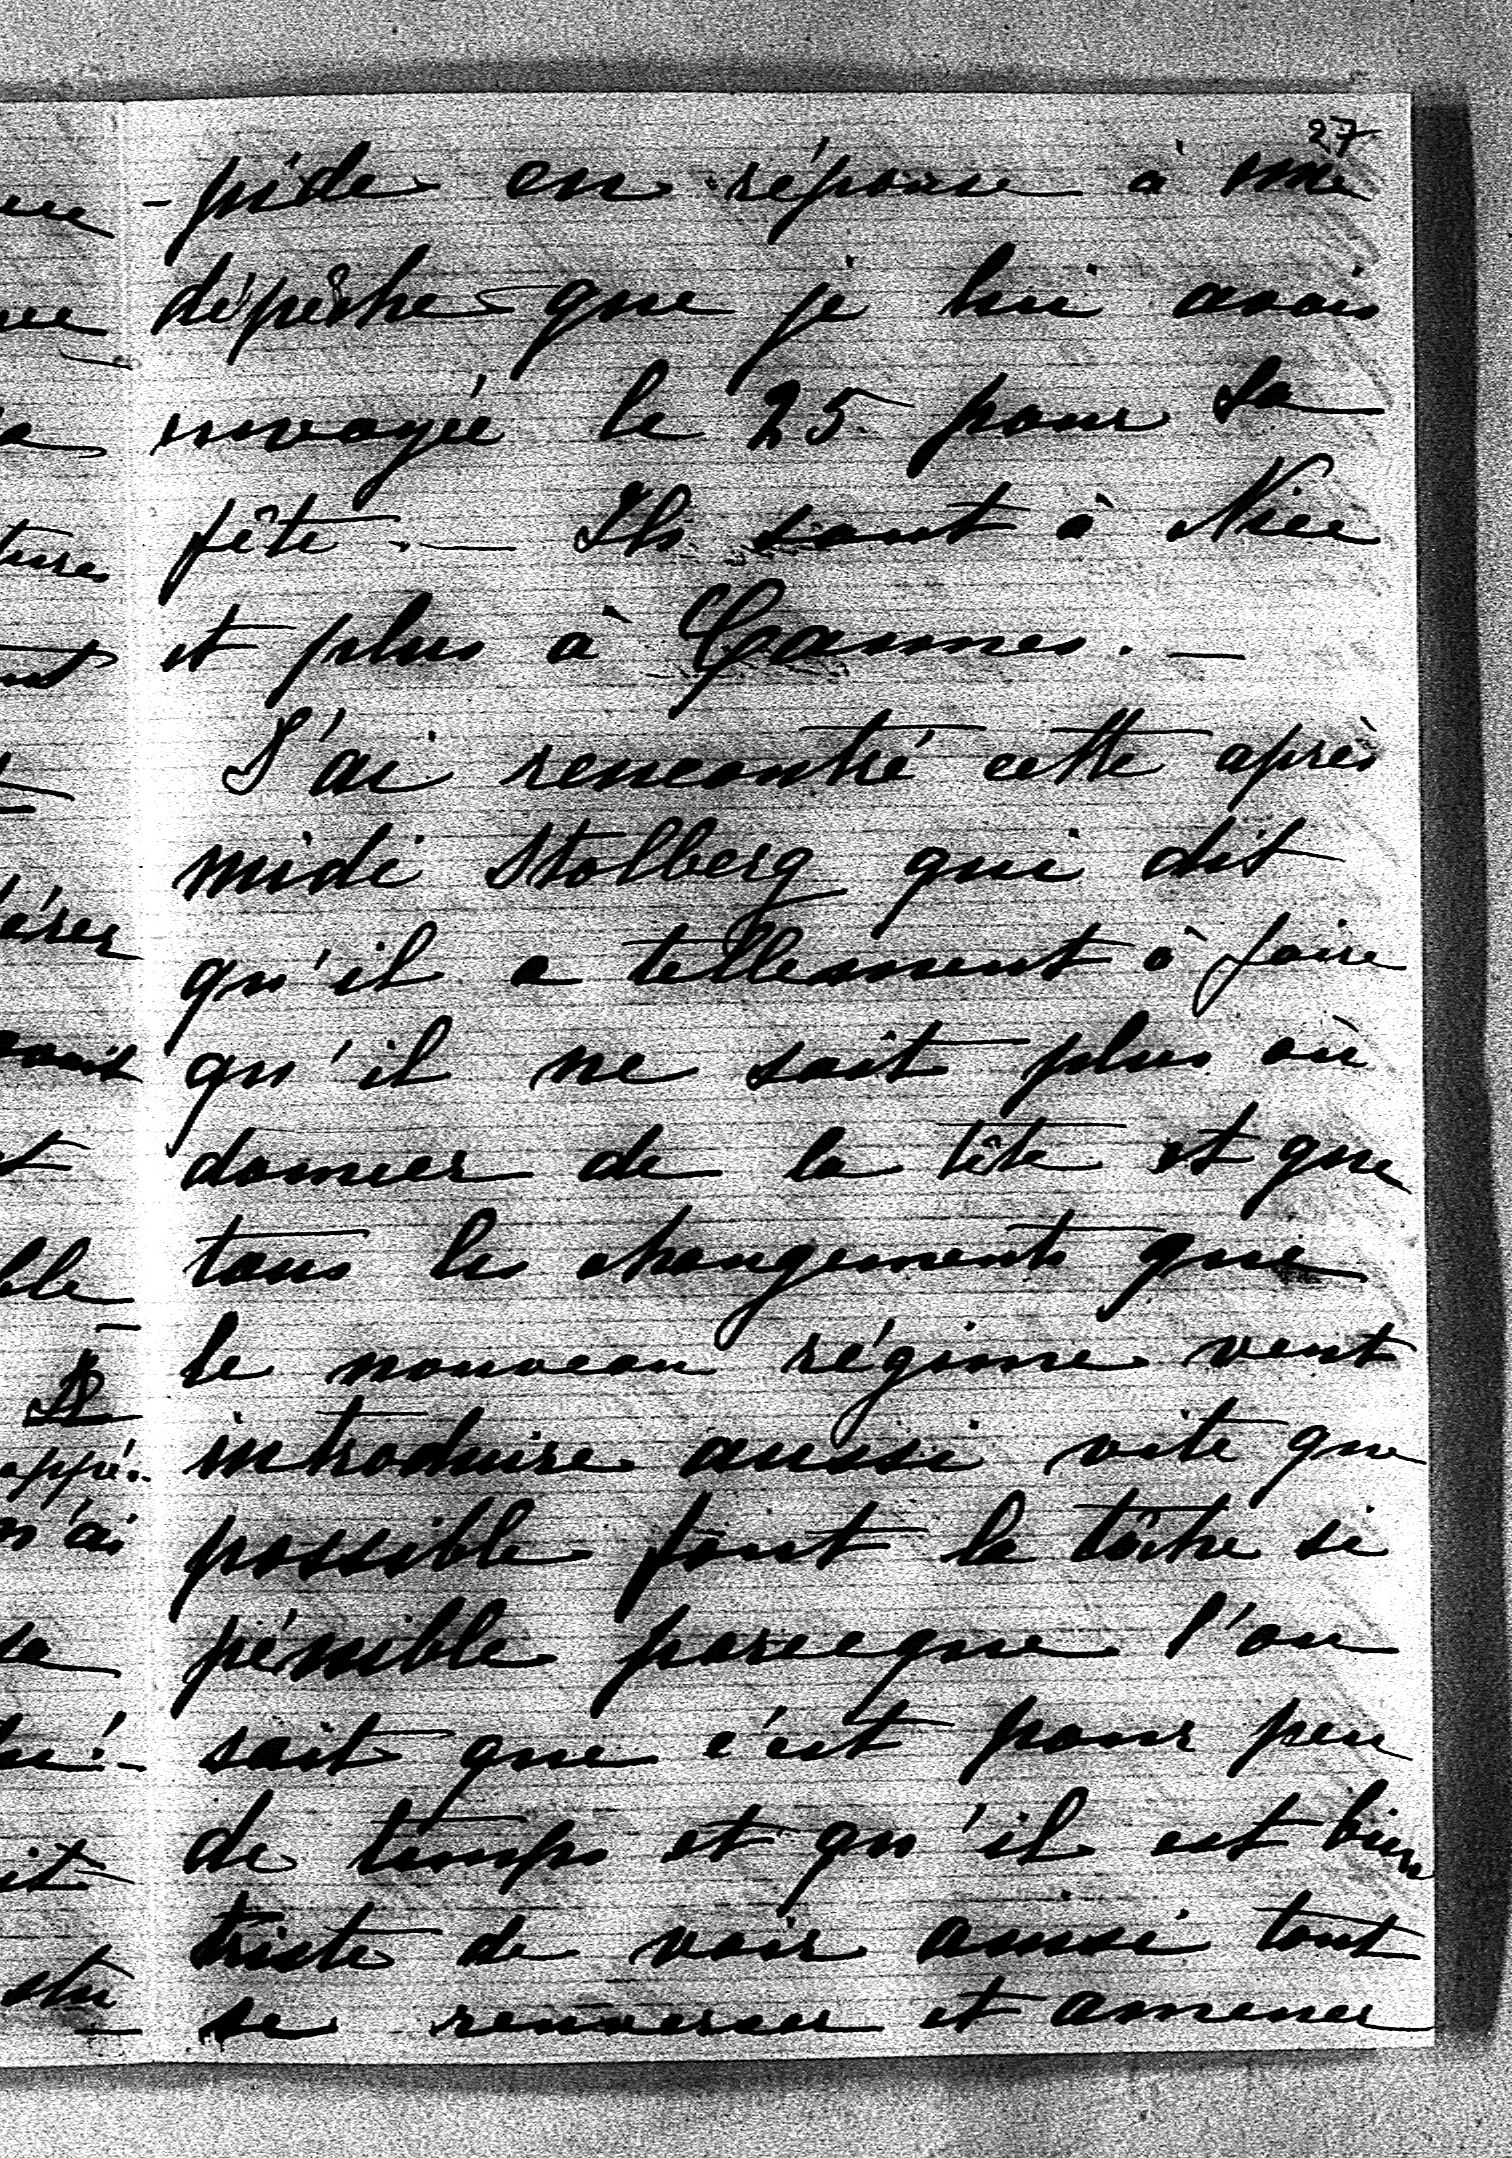 27
-pide en réponse à une
dépêche que je lui avais
envoyée le 25 pour sa
fête. — Ils sont à Nice
et plus à Cannes. —
J'ai rencontré cette après
midi Stolberg qui dit
qu'il a tellement à faire
qu'il ne sait plus où
donner de la tête et que
tous les changements que
le nouveau régime veut
introduire aussi vite que
possible font la tâche si
pénible parceque l'on
sait que c'est pour peu
de temps et qu'il est bien
triste de voir ainsi tout
se renverser et amener